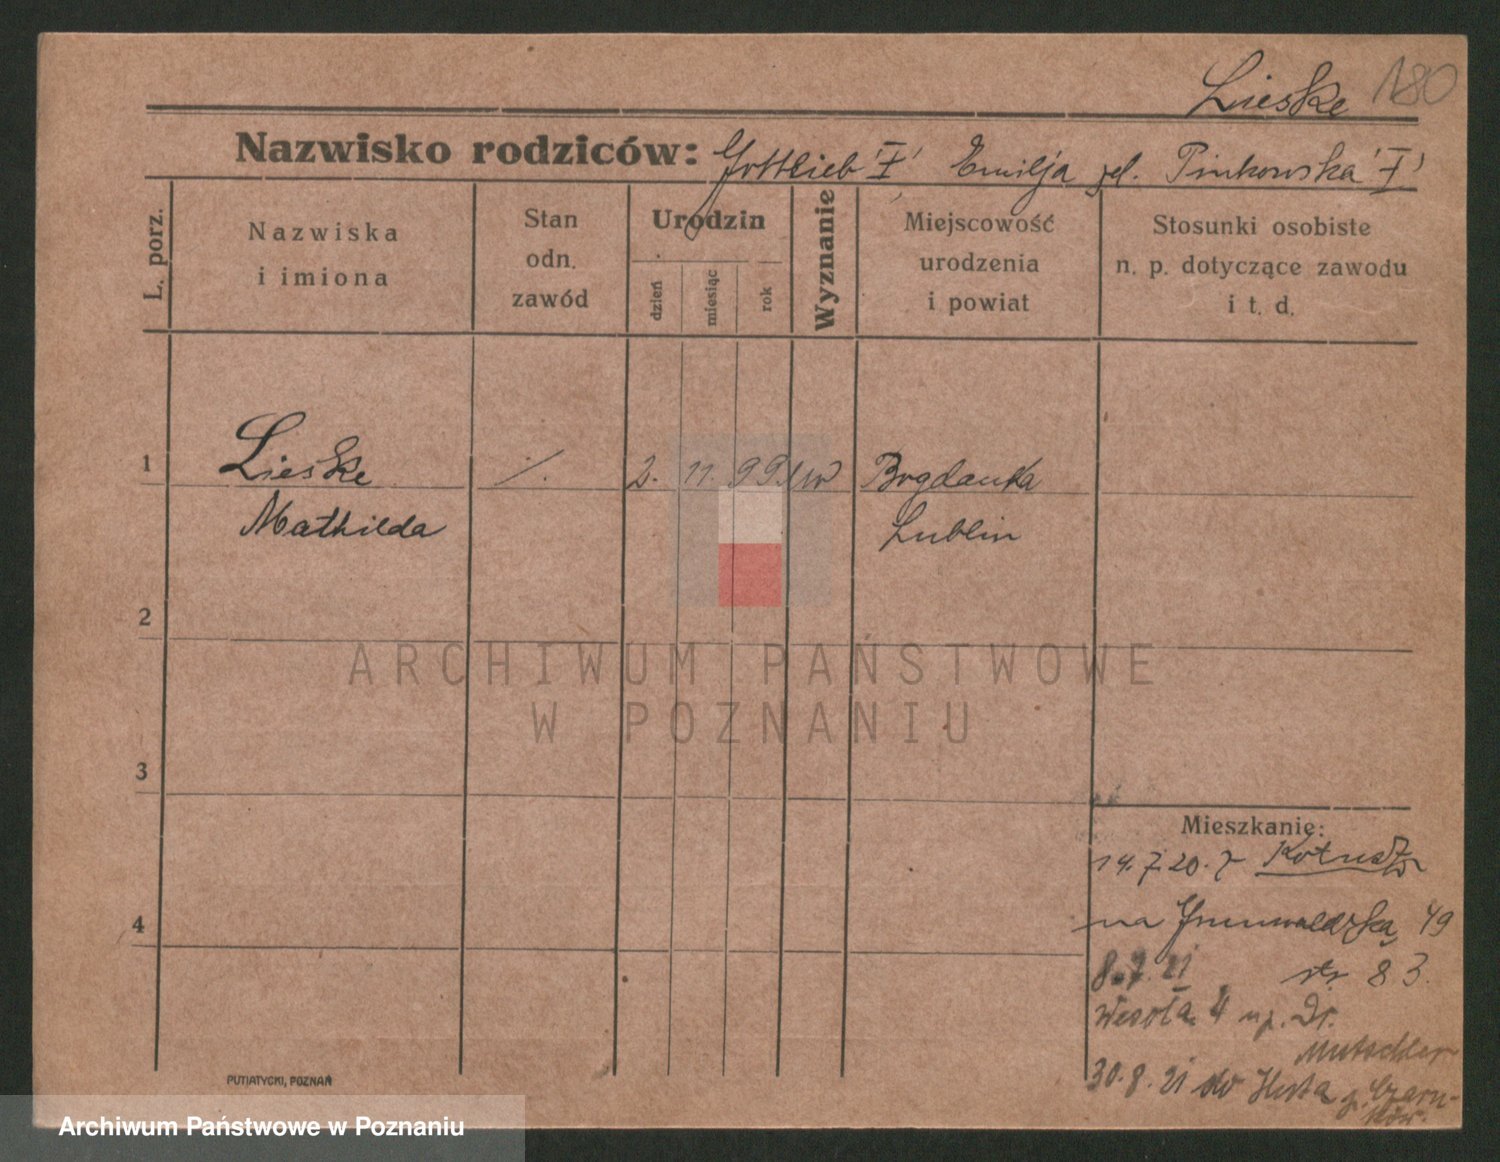 Lieske 180
Nazwisko rodziców: Gottlieb 'I' Emilja gd. Pinkowska 'I'
L. porz.
Nazwiska
i imiona
Stan
odn.
zawód
Urodzin
dzień
miesiąc
rok
Wyznanie
Miejscowość
urodzenia
i powiat
Stosunki osobiste
n. p. dotyczące zawodu
i t. d.
1 Lieske ·/. 2. 11. 99. ew Bogdanka
Mathilda Lublin
2
3
4
Mieszkanie:
14.7.20. z
na Grunwaldzką 49
8.7.21 str 83.
Wesoła 4 u p. Dr.
Mutschler
30.8.21 do Huta p. Czarn-
ków.
PUTIATYCKI, POZNAŃ
ARCHIWUM PAŃSTWOWE
W POZNANIU
Archiwum Państwowe w Poznaniu